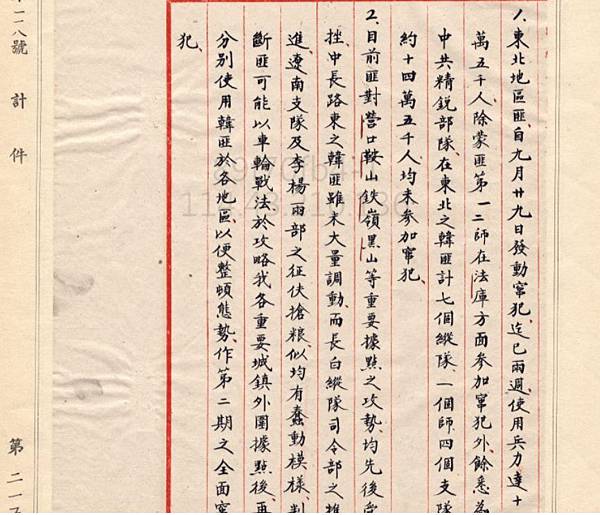 1、東北地區匪自九月廿九日發動竄犯、迄已兩週、使用兵力達十
萬五千人、除蒙匪第一二師在法庫方面參加竄犯外、餘悉為
中共精銳部隊、在東北之韓匪計七個縱隊、一個師四個支隊
約十四萬五千人、均未參加竄犯、
2、目前匪對營口鞍山鉄嶺黑山等重要據點之攻勢、均先後受
挫、中長路東之韓匪雖未大量調動、而長白縱隊司令部之推
進遼南支隊及李楊兩部之征伕搶粮、似均有蠢動模樣、判
斷匪可能以車輪戰法、於攻略我各重要城鎮外圍據點後、再
分別使用韓匪於各地區、以便整頓態勢、作第二期之全面竄
犯、
一一八號 計 件 第二一